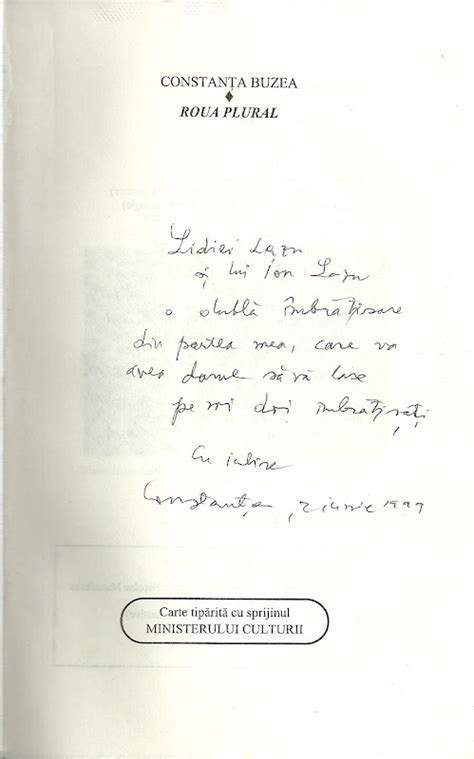 CONSTANȚA BUZEA
ROUA PLURAL
Lidiei Lazu
și lui Ion Lazu
o dublă îmbrățișare
din partea mea, care va
avea darul să vă lase
pe voi doi îmbrățișați
Cu iubire
Constanța, 2 iunie 1999
Carte tipărită cu sprijinul
MINISTERULUI CULTURII